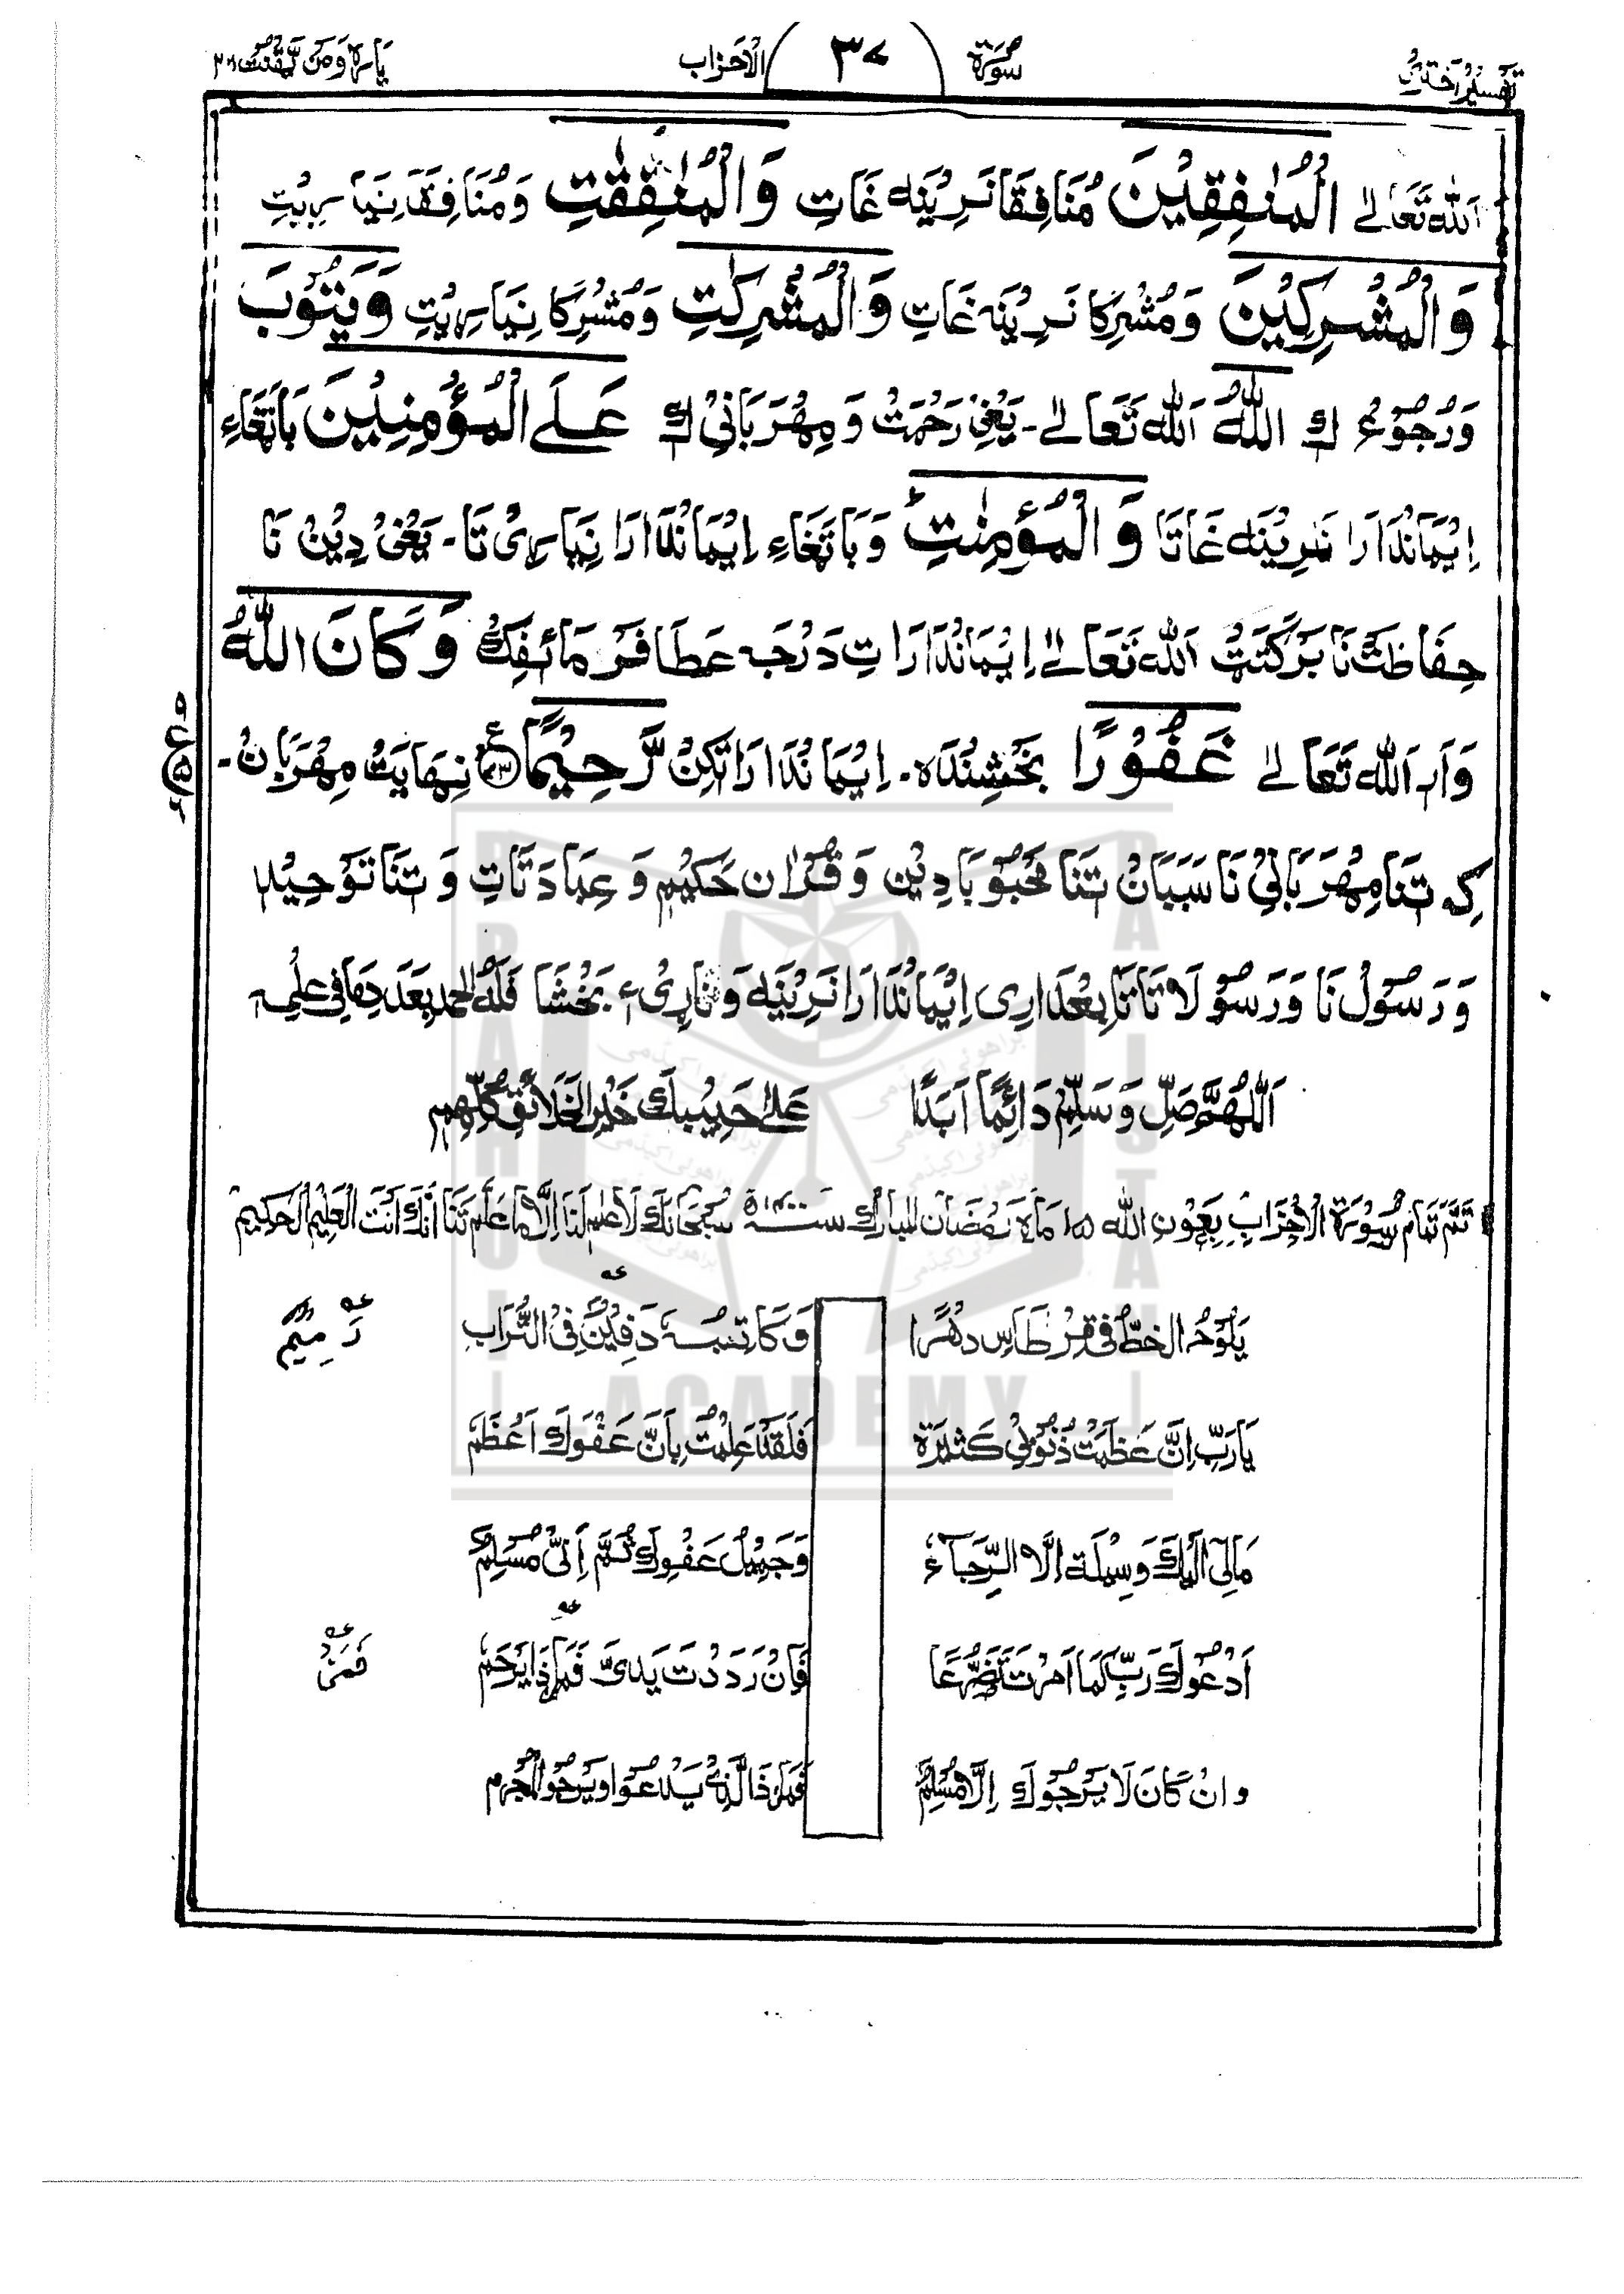 تفسیر اختری سورة ٣٧ الاحزاب پاره وَمَن یَّقنُت ٢٢
اَللّٰه تَعَالےٰ الْمُنٰفِقِيْنَ مُنَافِقَا نَرِیْنَه غَاتِ وَالْمُنٰفِقٰتِ وَمُنَافِقَا نِیَاسِ یْتِ
وَالْمُشْرِكِيْنَ وَمُشْرِكَا نَرِیْنَه غَاتِ وَالْمُشْرِكٰتِ وَمُشْرِكَا نِیَاسِ یْتِ وَيَتُوْبَ
وَرُجُوْعْ كِ اللّٰهُ اَللّٰه تَعَالےٰ۔ یَعْنِیْ رَحْمَتْ وَمِهْرَبَانِیْ كِ عَلَے الْمُؤْمِنِيْنَ بَاتَغَاءِ
اِیْمَانْدَارَا نَرِیْنَه غَاتَا وَالْمُؤْمِنٰتِ وَبَاتَغَاءِ اِیْمَانْدَارَا نِیَاسِ یْ تَا۔ یَعْنِیْ دِیْنْ نَا
حِفَاظَتْ نَا بَرَكَتَتْ اَللّٰه تَعَالےٰ اِیْمَانْدَارَاتِ دَرْجَه عَطَا فَرْمَائِفِكْ وَكَانَ اللّٰهُ
وَاَرِ اَللّٰه تَعَالےٰ غَفُوْرًا بَخْشِنْدَه۔ اِیْمَانْدَارَاتِكِنْ رَّحِيْمًا ٧٣ نِهَایَتْ مِهْرَبَانْ۔
كِه تِنَا مِهْرَبَانِیْ نَا سَبَبَانْ تِنَا مَحْبُوْبَا دِیْن وَ قُرْاٰن حَكِیْم وَ عِبَادَتَاتِ وَ تِنَا تَوْحِیْد
وَرَسُوْلْ نَا وَرَسُوْلَاتَا تَابِعْدَارِی اِیْمَانْدَارَا نَرِیْنَه وَنَارِیْءِ بَخْشَا فَلَلّٰهُ الْحَمْد بِعَدَدِ مَا فِی عِلْمِه
اَللّٰهُمَّ صَلِّ وَسَلِّمْ دَائِمًا اَبَدًا عَلٰی حَبِیْبِكَ خَیْرِ الْخَلَائِقِ كُلِّهِم
تَمَّ تَمَام سُوْرَة الْاَحْزَابِ بِعَوْنِ اللّٰه ١٥ مَاهِ رَمْضَان المبارَك سَنَه ١٤٠٠ه سُبْحَانَكَ لَا عِلْمَ لَنَا اِلَّا مَا عَلَّمْتَنَا اِنَّكَ اَنْتَ الْعَلِیْم الْحَكِیْم
یَلُوْحُ الخطُّ فی قِرْطَاسِ دَهْرًا وَكَاتِبُه رَمِیْمٌ دَفِیْنٌ فِی التُّرَابِ
یَا رَبِّ اِنْ عَظُمَتْ ذُنُوْبِیْ كَثِیْرَة فَلَقَدْ عَلِمْتُ بِاَنَّ عَفْوَكَ اَعْظَم
مَالِیْ اِلَیْكَ وَسِیْلَة اِلَّا الرَّجَآءُ وَجَمِیْلُ عَفْوِكَ ثُمَّ اِنِّیْ مُسْلِمٌ
اَدْعُوْكَ رَبِّ كَمَا اَمَرْتَ تَضَرُّعًا فَاِنْ رَدَدْتَ یَدِیَّ فَمَنْ ذَا یَرْحَمُ
وانْ كَانَ لَا یَرْجُوْكَ اِلَّا مُسْلِمٌ فَمَنْ ذَالَّذِیْ یَدْعُوا وَیَرْجُو الْمُجْرِم
BRAHUI ACADEMY PAKISTAN